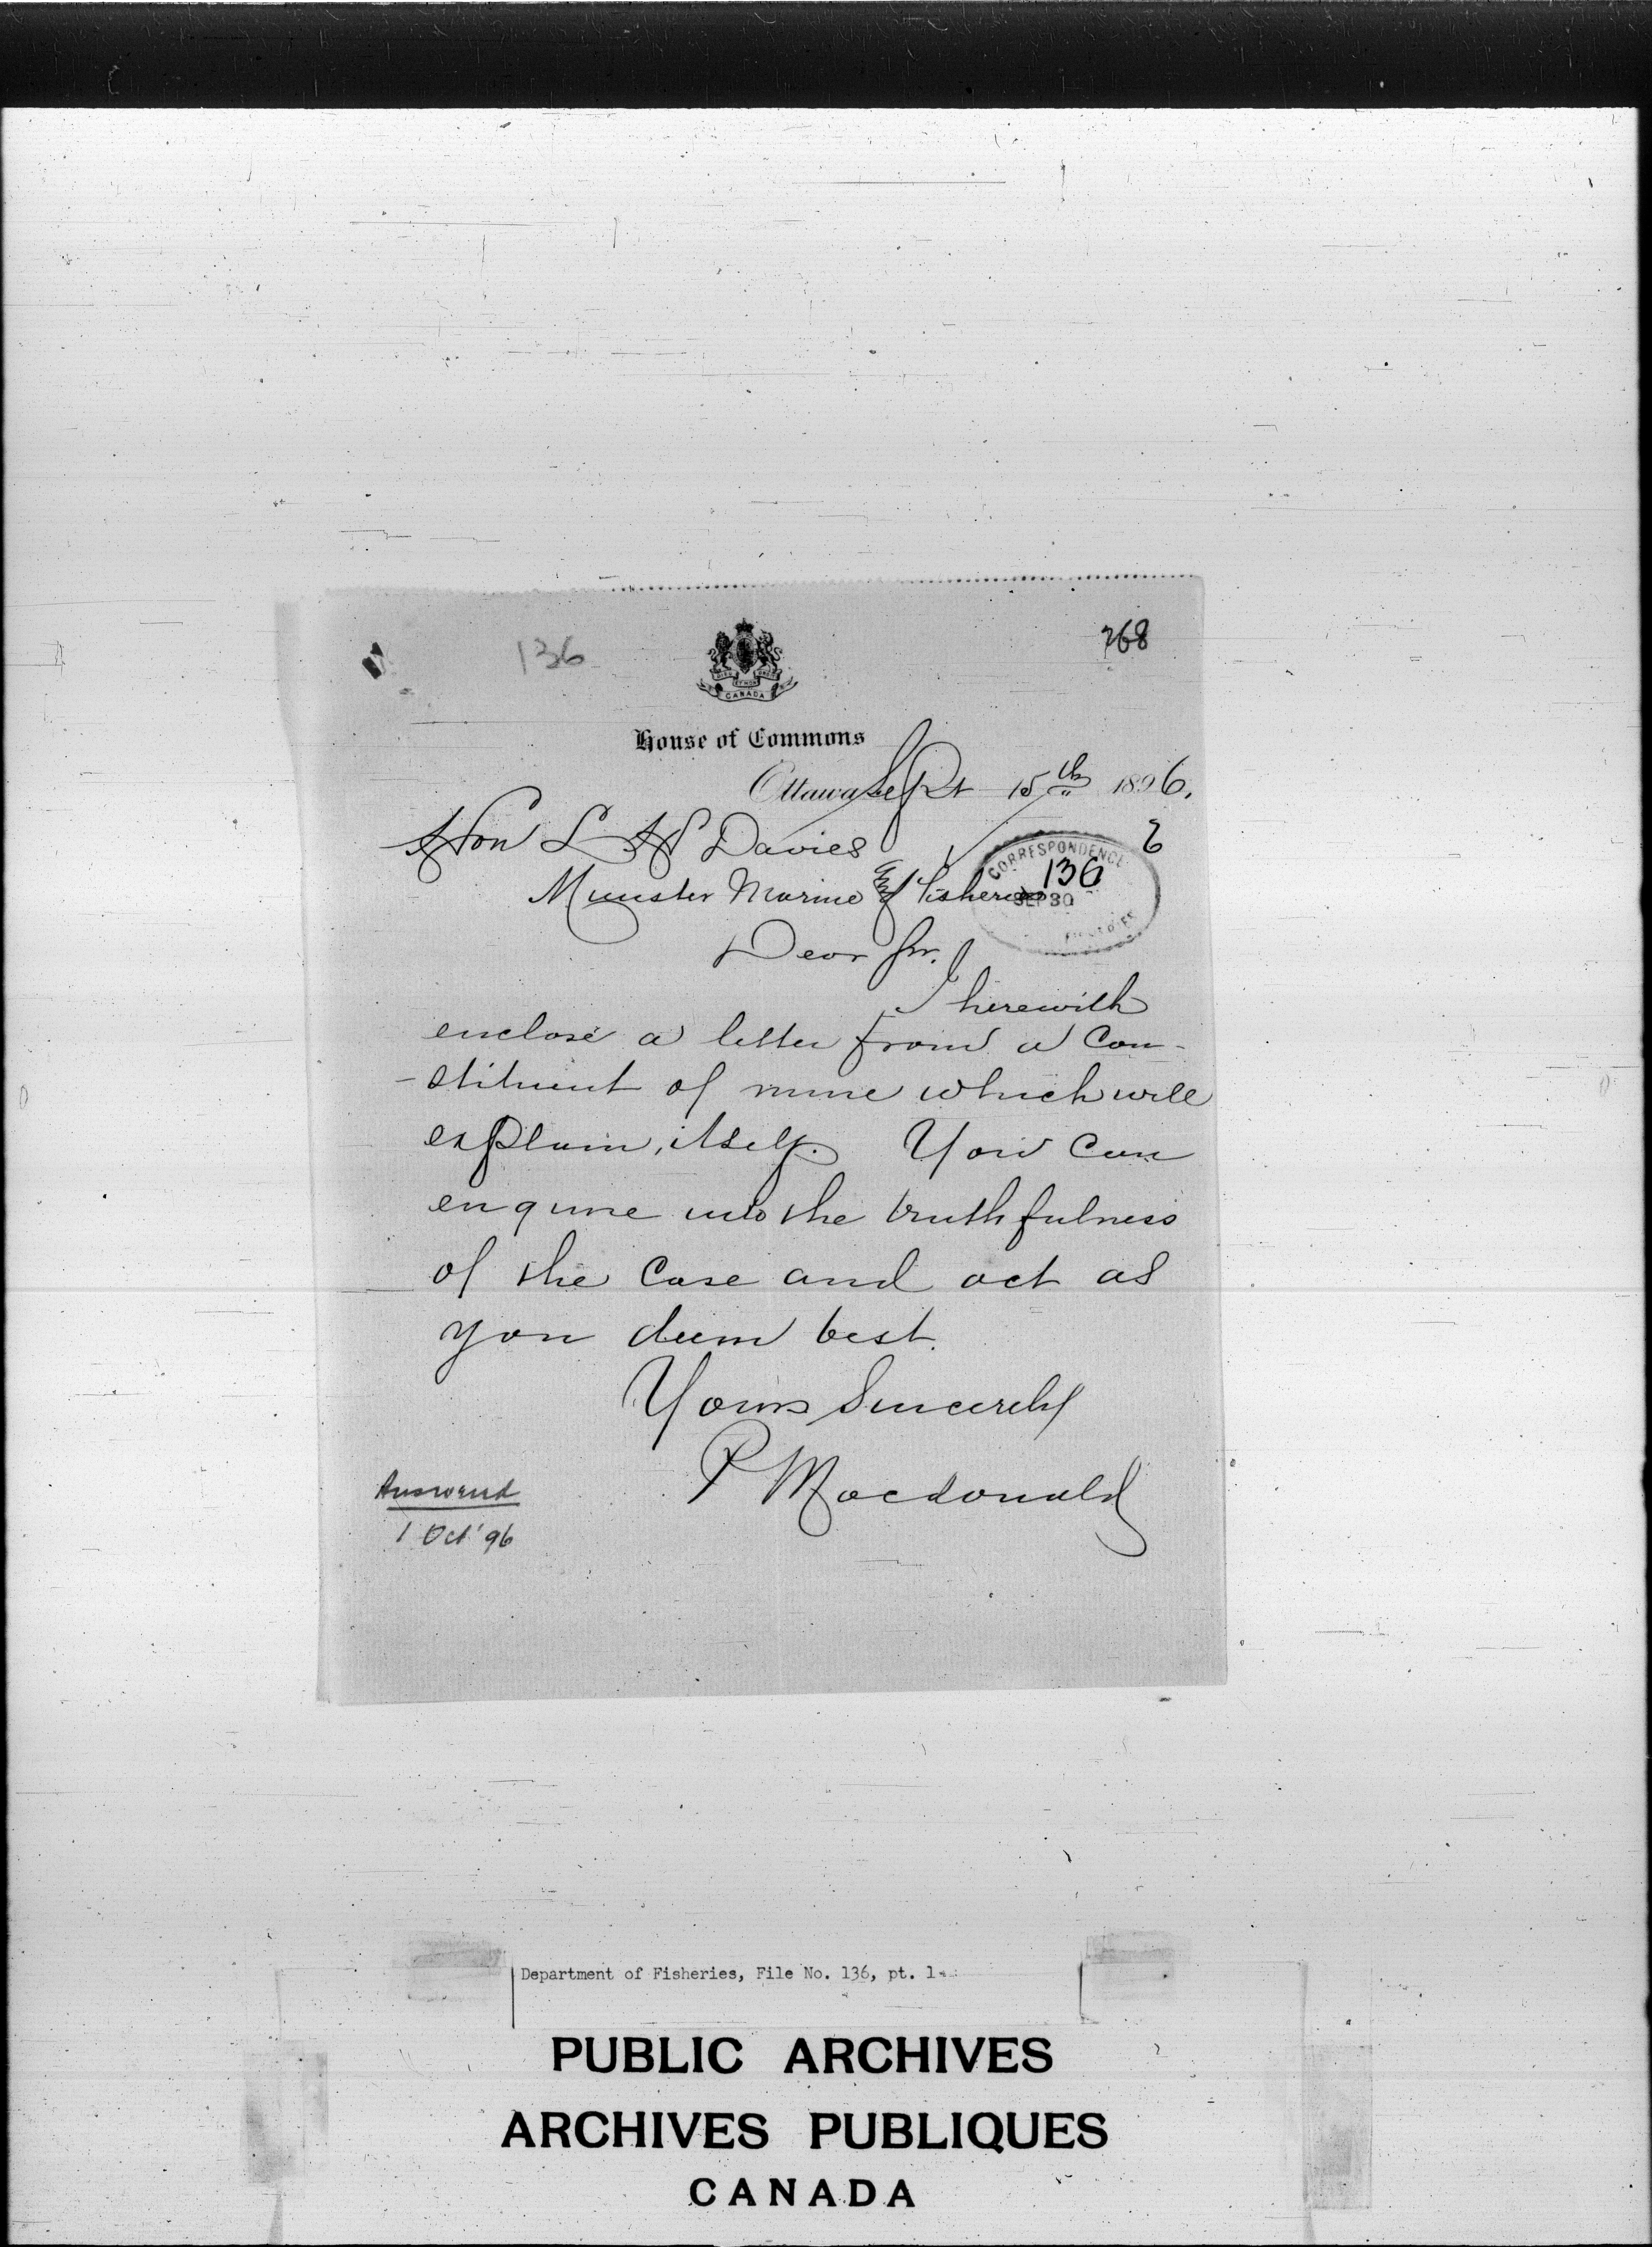 136
768
CANADA
House of Commons
Ottawa Sept 15th 1896.
Hon L H Davies
Minister Marine & Fisheries
CORRESPONDENCE
136
SEP 30
FISHERIES
Dear Sir.
I herewith
enclose a letter from a Con-
-stituent of mine which will
explain, itself. You can
enquire into the truthfulness
of the Case and act as
you deem best.
Yours Sincerely
P Macdonald
Answered
1 Oct '96
Department of Fisheries, File No. 136, pt. 1
PUBLIC ARCHIVES
ARCHIVES PUBLIQUES
CANADA